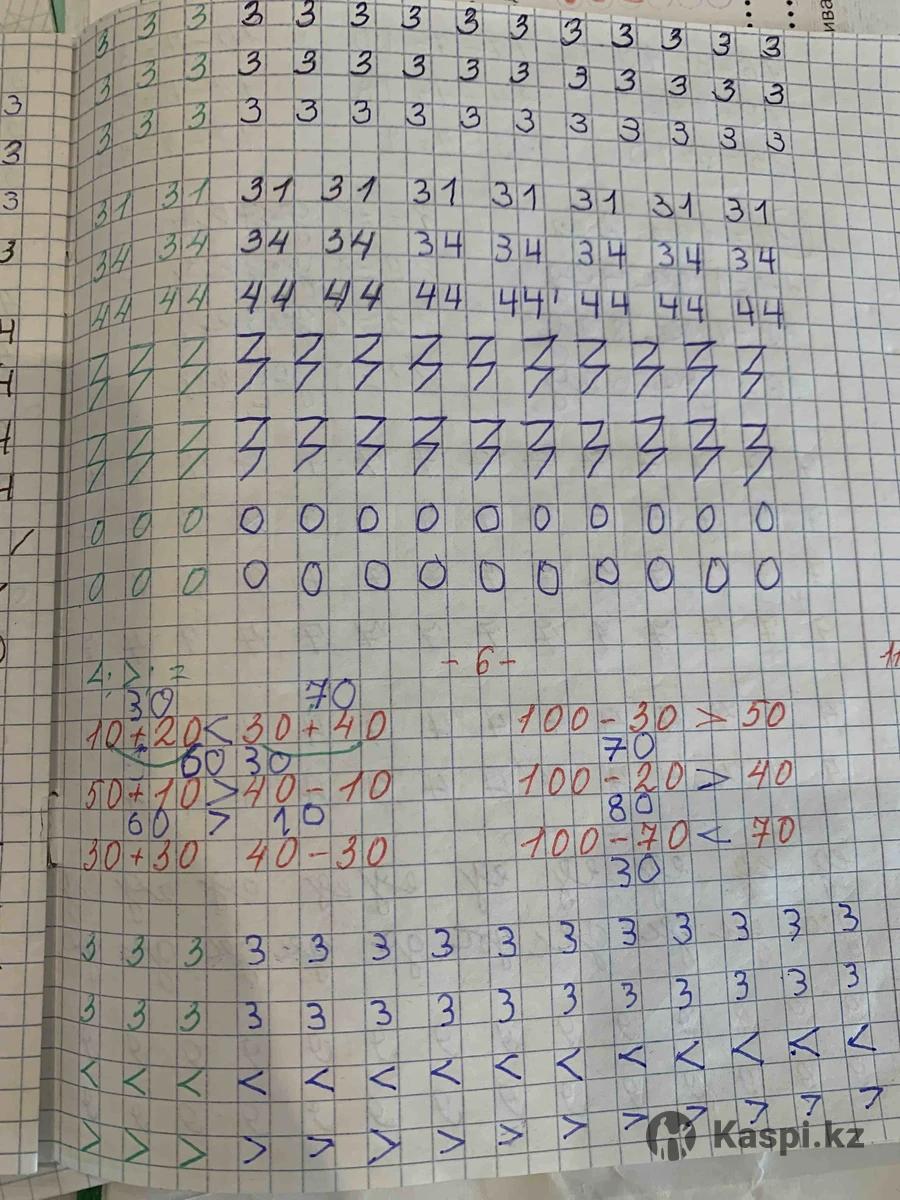 3 3 3 3 3 3 3 3 3 3 3 3 3 3
3 3 3 3 3 3 3 3 3 3 3 3 3
3 3 3 3 3 3 3 3 3 3 3 3 3
31 31 31 31 31 31 31 31 31
34 34 34 34 34 34 34 34 34
44 44 44 44 44 44 44 44 44
0 0 0 0 0 0 0 0 0 0 0 0 0
0 0 0 0 0 0 0 0 0 0 0 0 0
<; >; =
- 6 -
30 70
10 + 20 < 30 + 40
60 30
50 + 10 > 40 - 10
60 > 10
30 + 30 40 - 30
100 - 30 > 50
70
100 - 20 > 40
80
100 - 70 < 70
30
3 3 3 3 3 3 3 3 3 3 3 3 3 3
3 3 3 3 3 3 3 3 3 3 3 3 3 3
< < < < < < < < < < < < < <
> > > > > > > > > > > > > >
Kaspi.kz